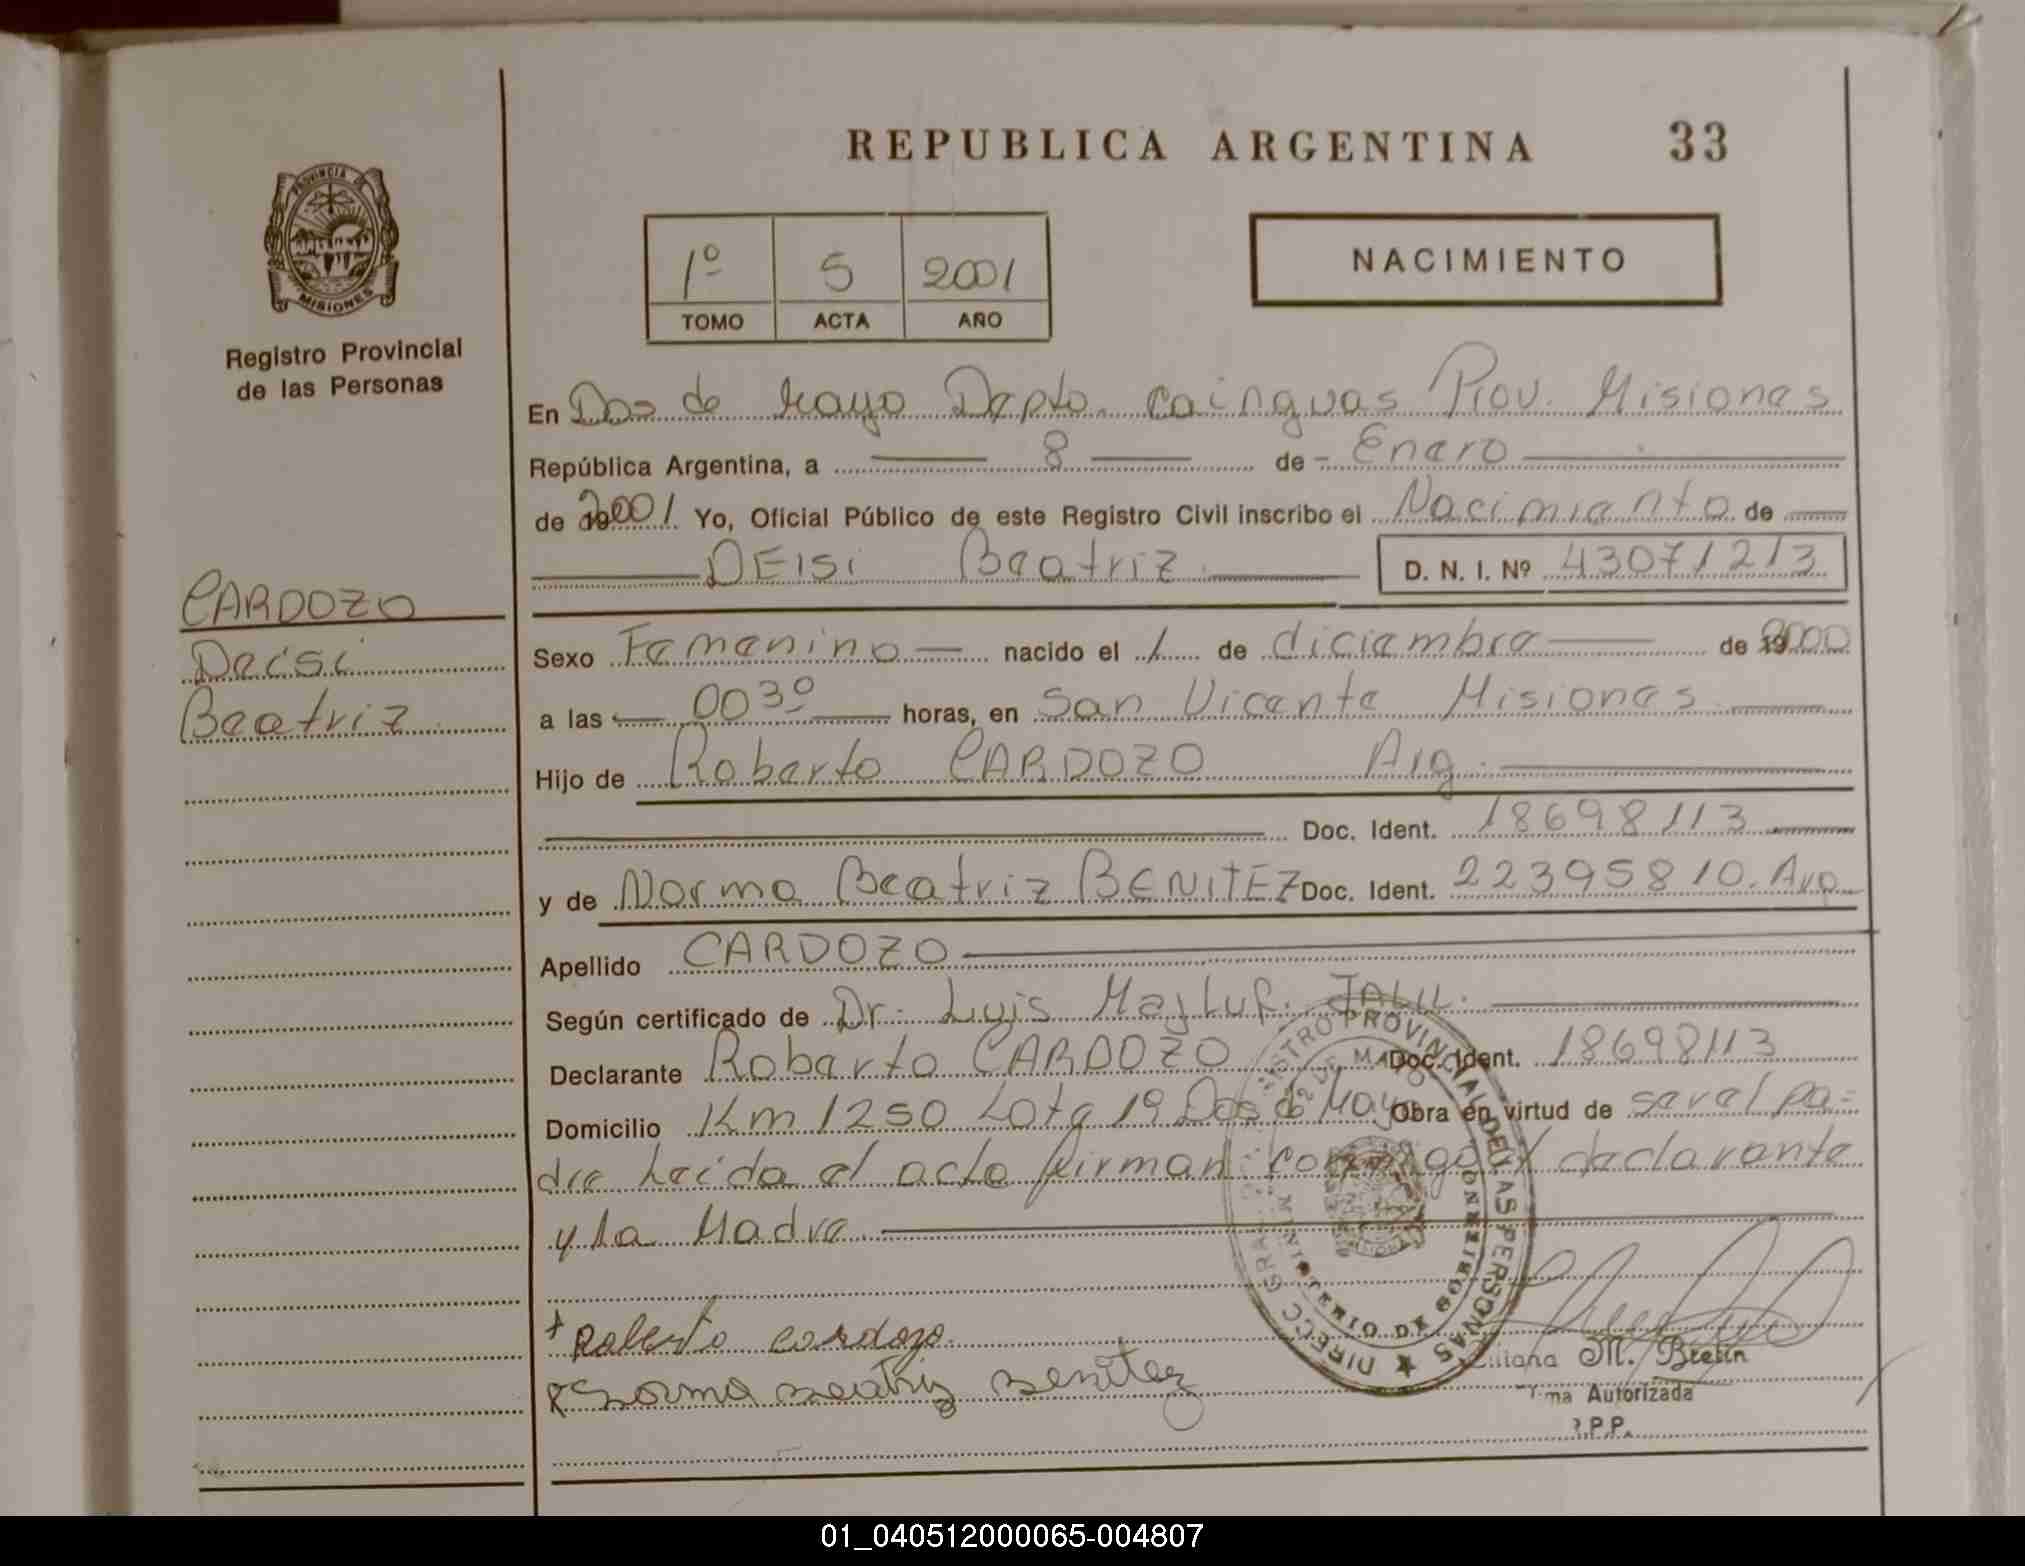 REPUBLICA ARGENTINA 33
PROVINCIA DE
MISIONES
Registro Provincial
de las Personas
1º 5 2001
TOMO ACTA AÑO
NACIMIENTO
En Dos de Mayo Depto. Cainguas Prov. Misiones
República Argentina, a 8 de Enero
de 2001 Yo, Oficial Público de este Registro Civil inscribo el Nacimiento de
DEISi Beatriz D. N. I. Nº 43071213
CARDOZO
Deisi
Beatriz
Sexo Femenino nacido el 1 de diciembre de 2000
a las 0030 horas, en San Vicente Misiones
Hijo de Roberto CARDOZO Arg.
Doc. Ident. 18698113
y de Norma Beatriz BENITEZ Doc. Ident. 22395810. Arg.
Apellido CARDOZO
Según certificado de Dr. Luis Majluf. JALIL.
Declarante Roberto CARDOZO Doc. Ident. 18698113
Domicilio Km 1250 Lote 19 Dos de Mayo Obra en virtud de ser el pa-
dre Leida el acta firman conmigo declarante
y la Madre.
Roberto cardozo
Norma Beatriz Benitez
REGISTRO PROVINCIAL DE LAS PERSONAS
2 DE MAYO
MINISTERIO DE GOBIERNO
DIRECC. GRAL.
Liliana M. Bretin
Firma Autorizada
R.P.P.
01_040512000065-004807